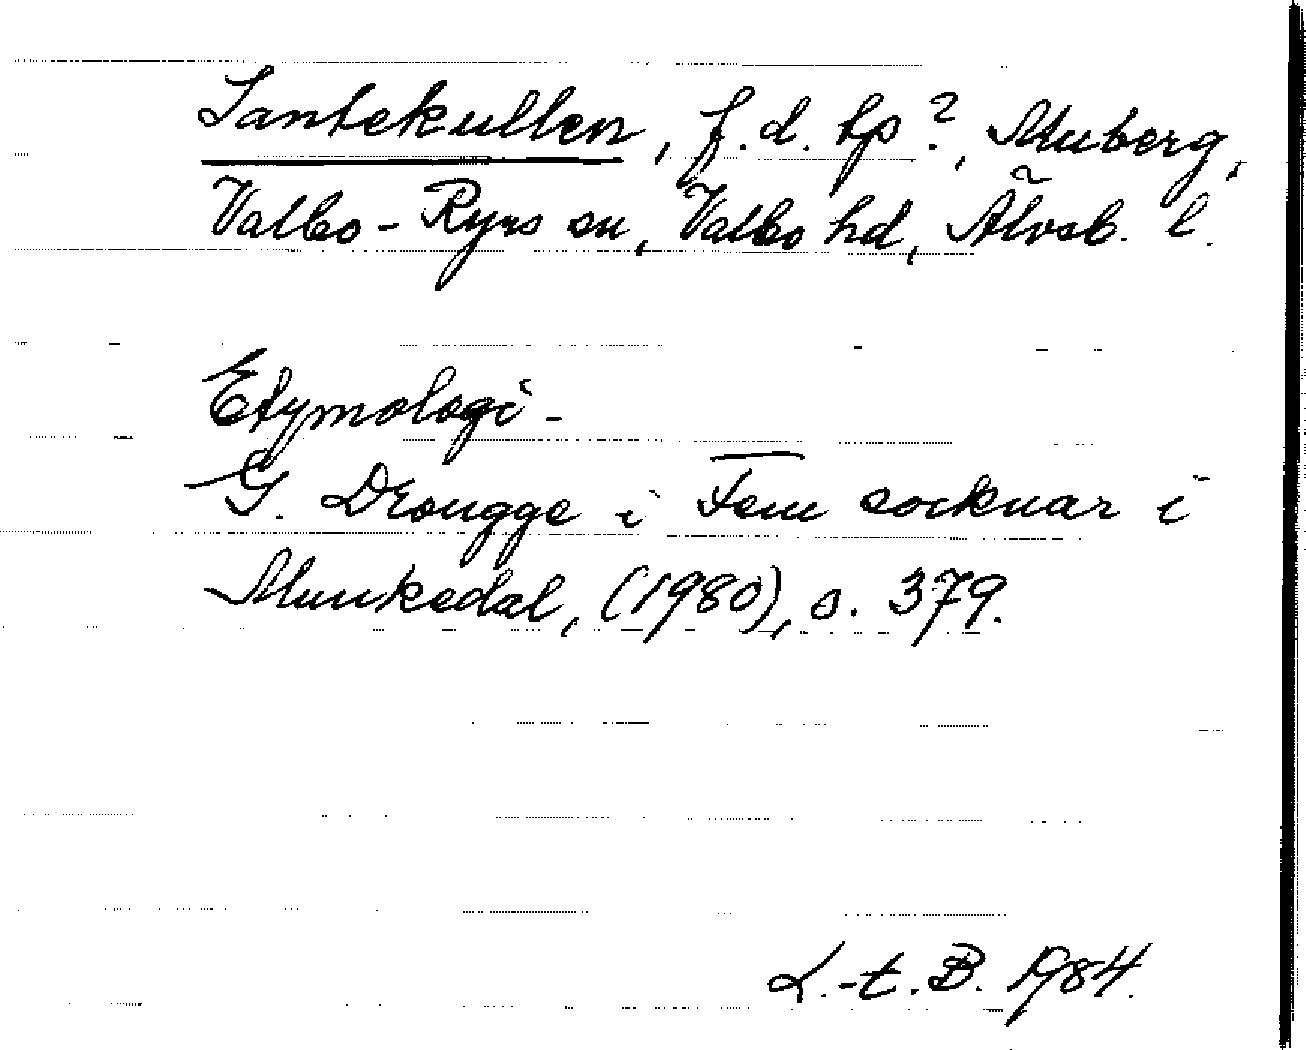 Santekullen, f. d. tp?, Muberg,
Valbo-Ryrs sn, Valbo hd, Älvsb. l.
Etymologi -
G. Drougge i Fem socknar i
Munkedal, (1980), s. 379.
L.-t. B. 1984.